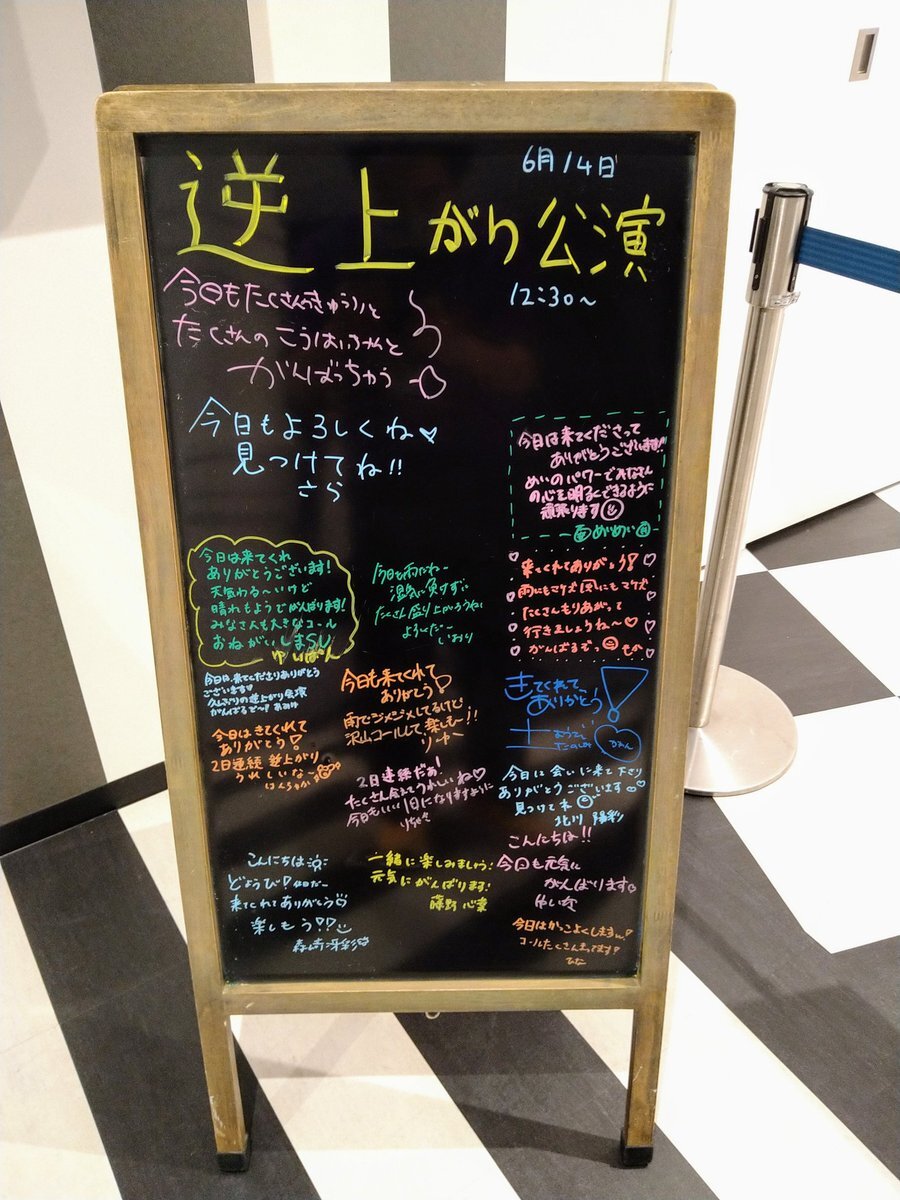 6月14日
逆上がり公演
12:30〜
今日もたくさん
たくさんのこうはいちゃんと
がんばっちゃう
今日もよろしくね♡
見つけてね!!
さら
今日は来てくださって
ありがとうございます!!
めいのパワーでみなさん
の心を明るくできるように
頑張ります
めいめい
今日は来てくれ
ありがとうございます!
天気わる〜いけど
晴れもようでがんばります!
みなさんも大きなコール
おねがいしまSU
ゆいぽん
今日も雨だねー
湿気に負けずに
たくさん盛り上がろうね
よろしくだー
いおり
来てくれてありがとう!
雨にもマケズ風にもマケズ
たくさんもりあがって
行きましょうね〜♡
がんばるぞっ
もか
今日は来てくださりありがとう
ございます
久しぶりの逆上がり公演
がんばるぞ〜!!
今日も来てくれて
ありがとう!
雨でジメジメしてるけど
沢山コールして楽しも〜!!
りゆー
きてくれて
ありがとう!
今日はきてくれて
ありがとう!
2日連続逆上がり
うれしいな〜
2日連続だぁ!
たくさん会えてうれしいね♡
今日もいい1日になりますように
今日は会いに来て下さり
ありがとうございます
見つけてね
北川 陽彩
こんにちは!!
今日も元気に
がんばります
ゆいな
こんにちは
どようび!休日だー
来てくれてありがとう♡
楽しもう!!
森﨑冴彩
一緒に楽しみましょう!
元気にがんばります!
藤野 心葉
今日はかっこよくします
コールたくさんまってます!
ひな